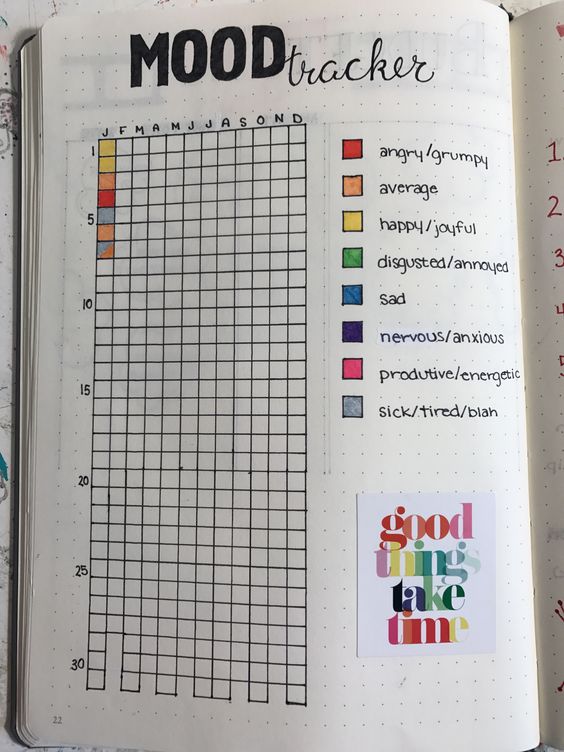 MOOD tracker
J F M A M J J A S O N D
1
5
10
15
20
25
30
angry/grumpy
average
happy/joyful
disgusted/annoyed
sad
nervous/anxious
produtive/energetic
sick/tired/blah
good
things
take
time
22
1.
2
3